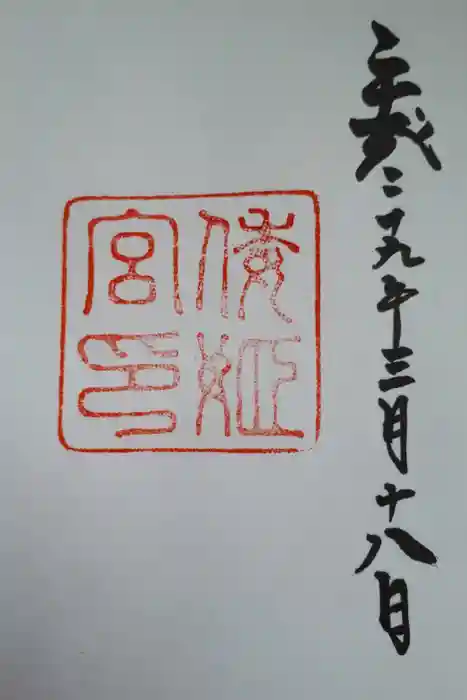 平成二十九年三月十八日
倭姫
宮印